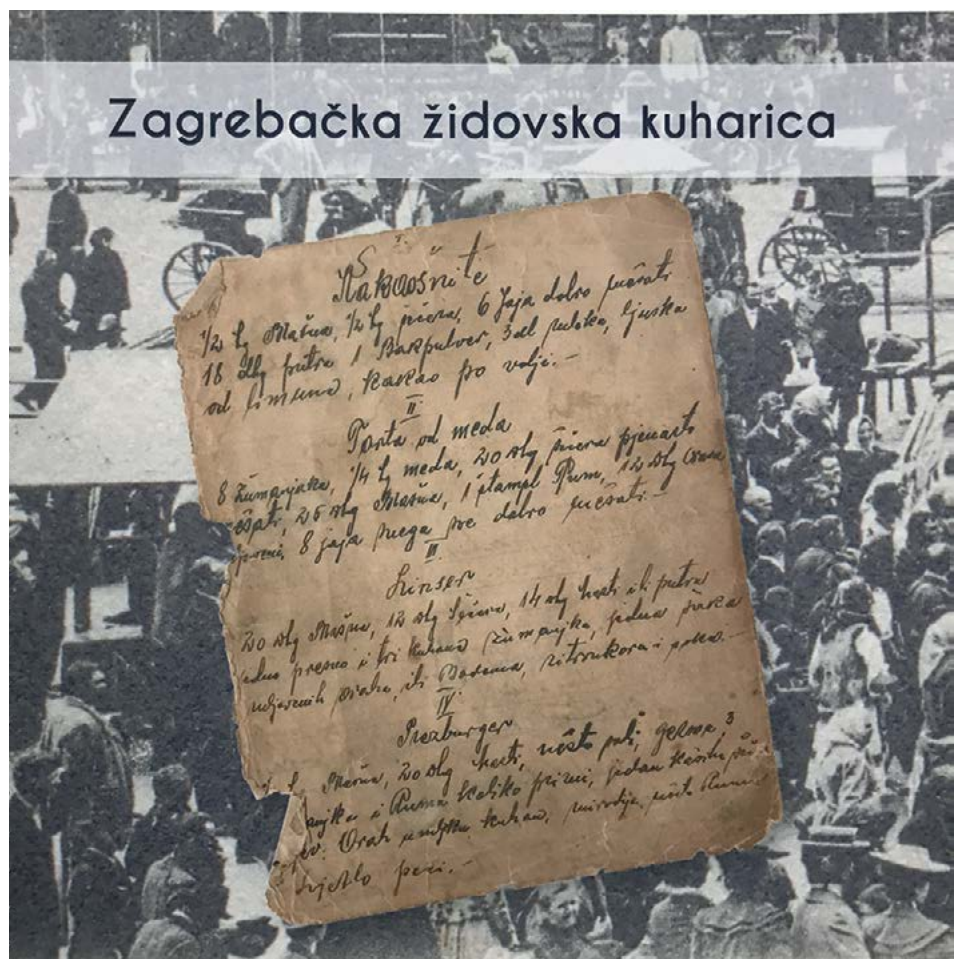 Zagrebačka židovska kuharica
I.
Kakaošnite
1/2 kg Mašna, 1/2 kg šićera, 6 Jaja dobro mešati
18 dkg putra 1 Backpulver, 3 del mleka, ljuska
od limuna, kakao po volji.-
II
Torta od meda
8 Žumanjaka, 1/4 kg meda, 20 dkg šićera pjenasto
mešati, 25 dkg Mašna, 1 štampl Rum, 12 dkg
8 jaja snega sve dobro mešati.-
III
Linzer
20 dkg Mašna, 12 dkg šićera, 14 dkg masti ili putra
jedno presno i tri kuhana žumanjka, jedna šaka
oraha, ili Badema, i
IV.
Prezburger
Mašna, 20 dkg masti, nešto soli, germa, 3
i Ruma koliko primi, jedan
Orah kuhan, nešto Ruma
svjetlo peči.-